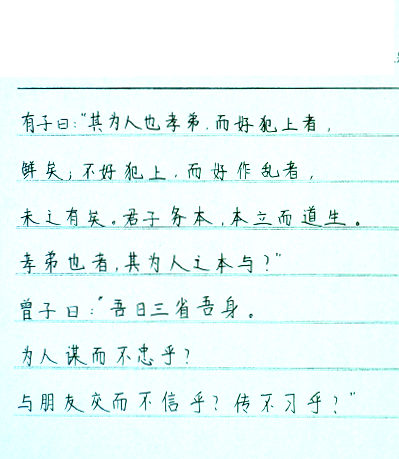 有子曰:“其为人也孝弟,而好犯上者,
鲜矣;不好犯上,而好作乱者,
未之有矣。君子务本,本立而道生。
孝弟也者,其为人之本与?”
曾子曰:“吾日三省吾身。
为人谋而不忠乎?
与朋友交而不信乎?传不习乎?”